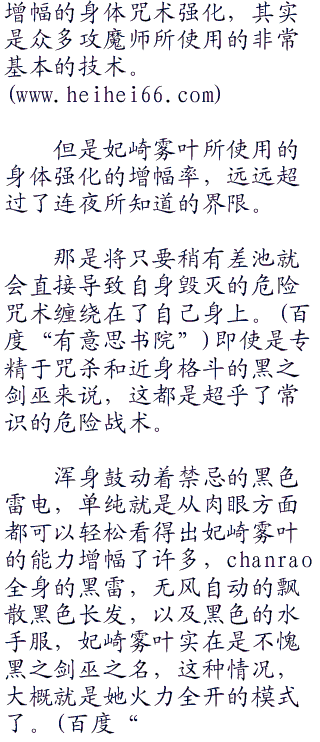 增幅的身体咒术强化，其实
是众多攻魔师所使用的非常
基本的技术。
(www.heihei66.com)
但是妃崎雾叶所使用的
身体强化的增幅率，远远超
过了连夜所知道的界限。
那是将只要稍有差池就
会直接导致自身毁灭的危险
咒术缠绕在了自己身上。(百
度“有意思书院”)即使是专
精于咒杀和近身格斗的黑之
剑巫来说，这都是超乎了常
识的危险战术。
浑身鼓动着禁忌的黑色
雷电，单纯就是从肉眼方面
都可以轻松看得出妃崎雾叶
的能力增幅了许多，chanrao
全身的黑雷，无风自动的飘
散黑色长发，以及黑色的水
手服，妃崎雾叶实在是不愧
黑之剑巫之名，这种情况，
大概就是她火力全开的模式
了。(百度“